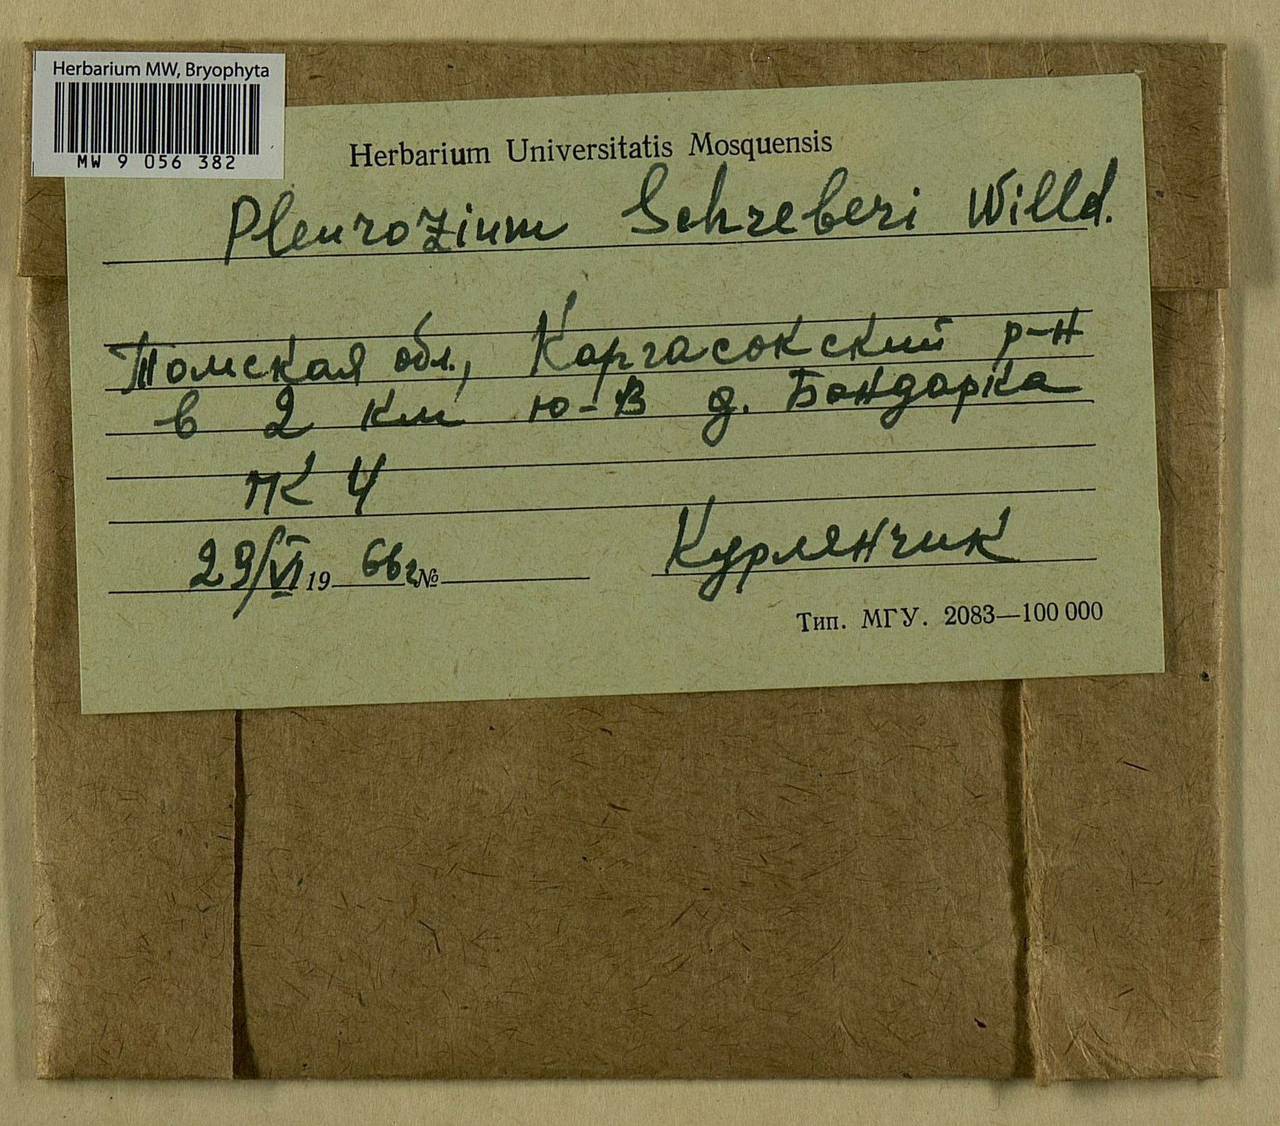 Herbarium MW, Bryophyta
MW 9 056 382
Herbarium Universitatis Mosquensis
Pleurozium Schreberi Willd.
Томская обл., Каргасокский р-н
в 2 км ю-В д. Бондарка
ПК 4
29/VI 1966г №
Курлянчик
Тип. МГУ. 2083—100 000